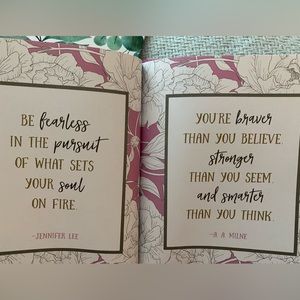 BE fearless
IN THE pursuit
OF WHAT SETS
YOUR soul
ON FIRE.
-JENNIFER LEE
YOU'RE braver
THAN YOU BELIEVE,
stronger
THAN YOU SEEM,
and smarter
THAN YOU THINK.
-A. A. MILNE